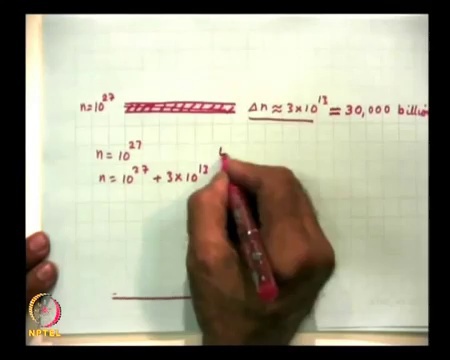 n=10^27 Δn ≈ 3×10^13 = 30,000 billion
n = 10^27
n = 10^27 + 3×10^13
NPTEL